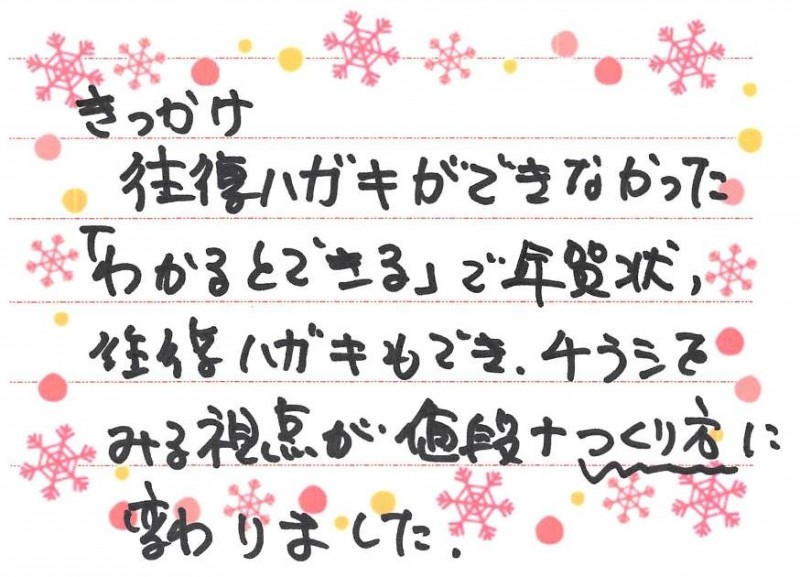 きっかけ
往復ハガキができなかった
「わかるとできる」で年賀状,
往復ハガキもでき.チラシを
みる視点が値段+つくり方に
変わりました.